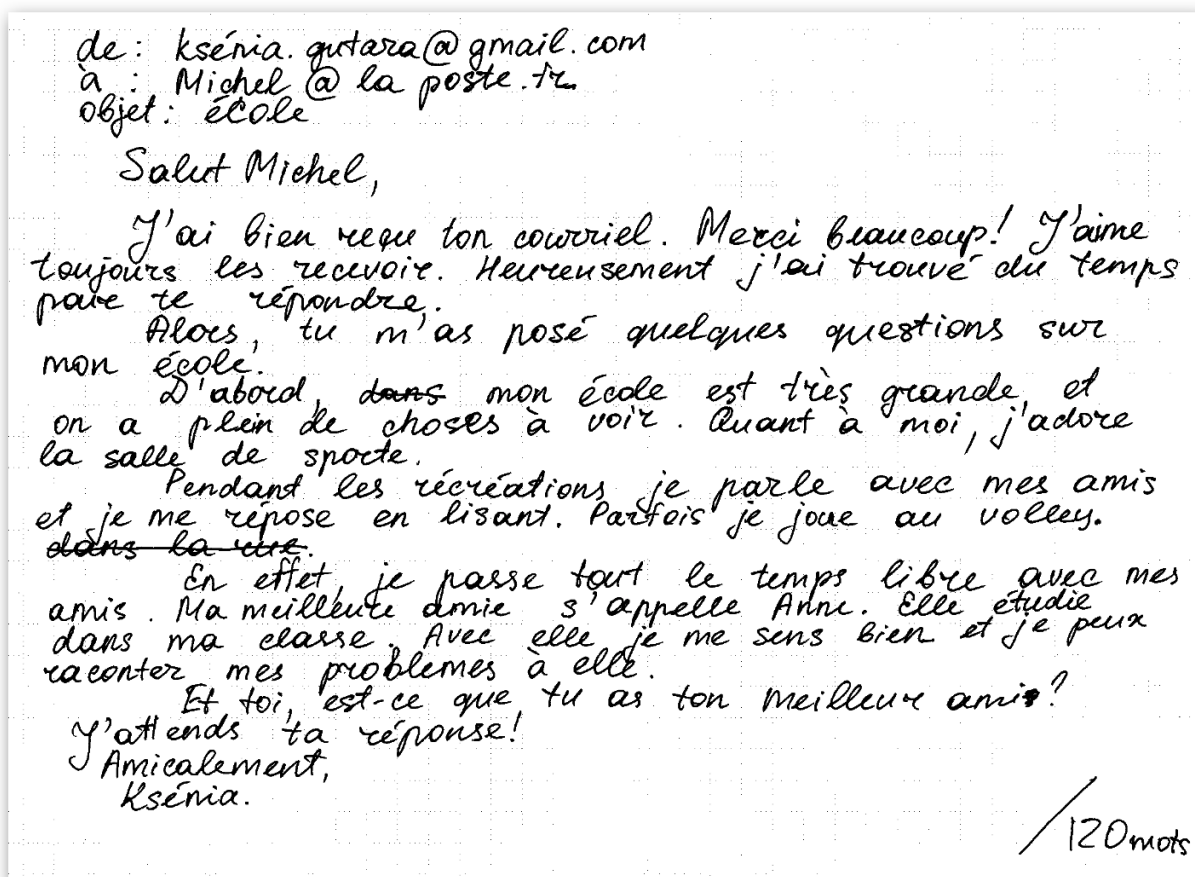 de : ksénia.gutara@gmail.com
à : Michel @ la poste.fr
objet : école
Salut Michel,
J'ai bien reçu ton courriel. Merci beaucoup! J'aime
toujours les recevoir. Heureusement j'ai trouvé du temps
pour te répondre.
Alors, tu m'as posé quelques questions sur
mon école.
D'abord, dans mon école est très grande, et
on a plein de choses à voir. Quant à moi, j'adore
la salle de sporte.
Pendant les récréations je parle avec mes amis
et je me répose en lisant. Parfois je joue au volley.
dans la rue.
En effet, je passe tout le temps libre avec mes
amis. Ma meilleure amie s'appelle Anne. Elle étudie
dans ma classe. Avec elle je me sens bien et je peux
raconter mes problèmes à elle.
Et toi, est-ce que tu as ton meilleur ami?
J'attends ta réponse!
Amicalement,
Ksénia.
/120 mots